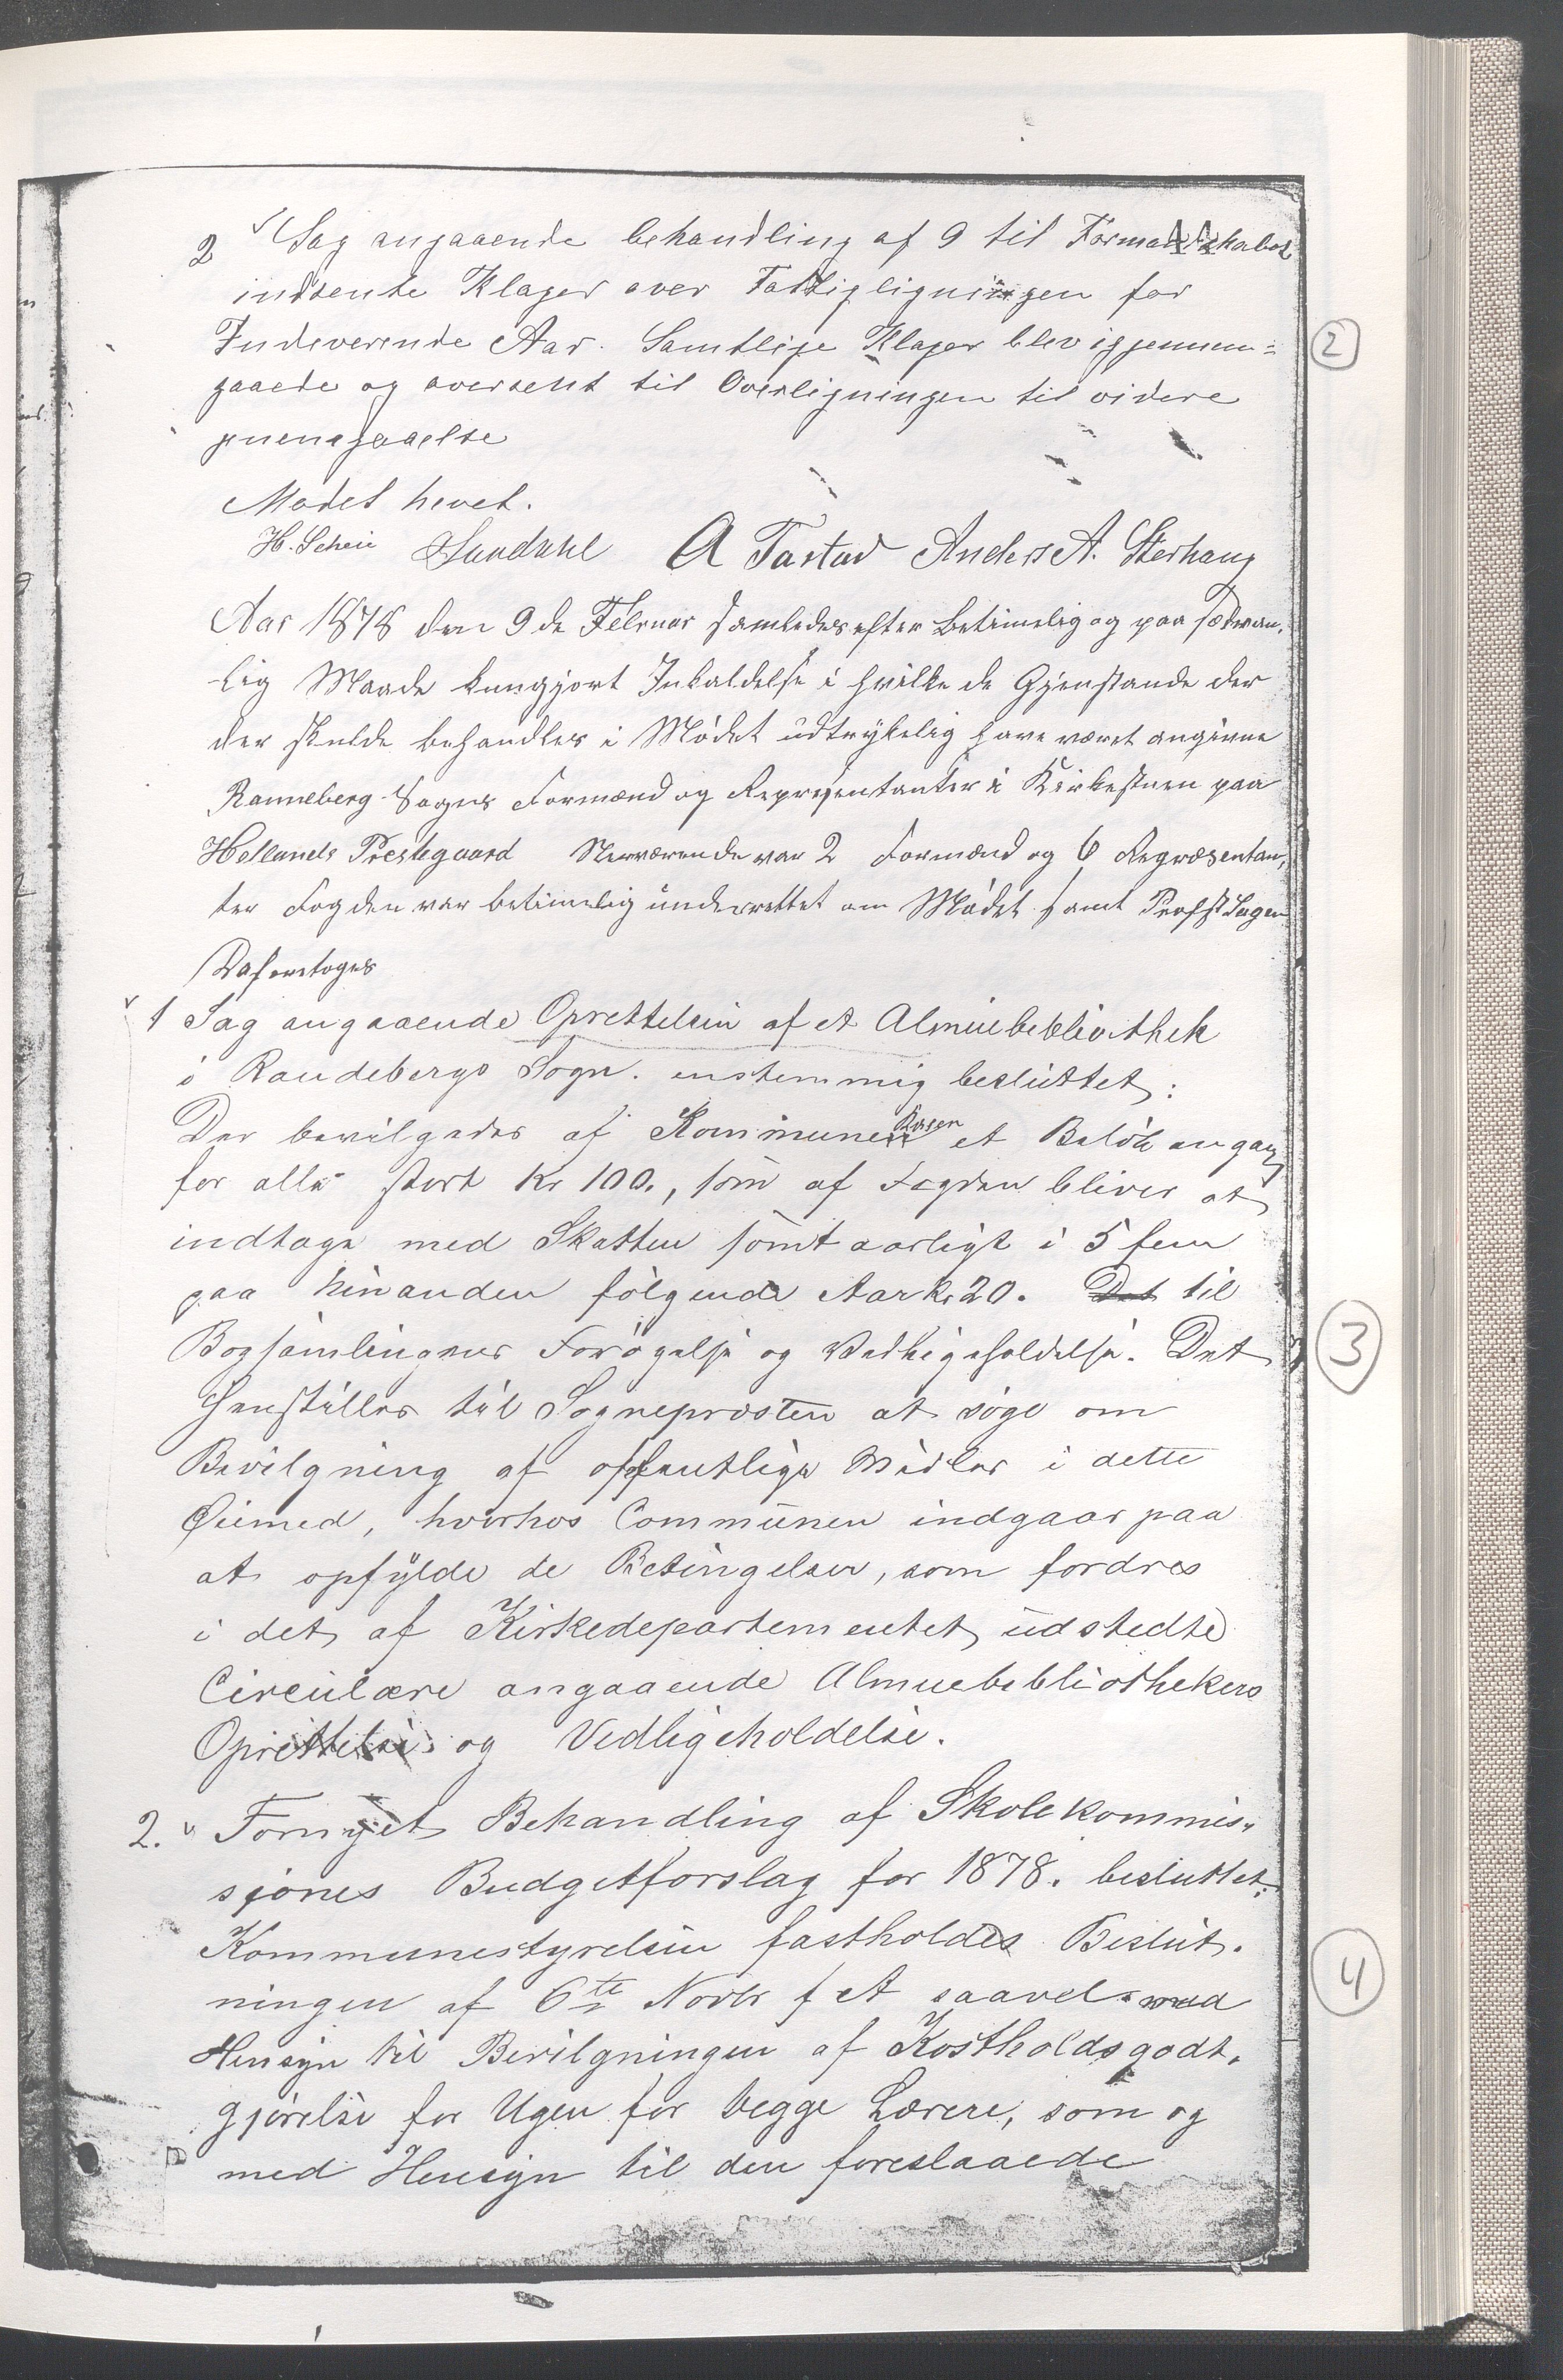 2 Sag angaaende behandling af 9 til Formandskabet
indsente Klager over Fattigligningen for
Indeverende Aar. Samtlige Klager blev igjennem=
gaaede og oversent til Overligningen til videre
Mødet hevet.
H. Scheie Sundahl A Tastad Anders A. Sterhaug
Aar 1878 den 9de Februar samledes efter betimelig og paa sædvan,
lig Maade kungjort Inkaldelse i hvilke de Gjenstande der
der skulde behandles i Mødet udtrykelig have været angivne
Ranneberg Sogns Formænd og Represjentanter i Kirkestuen paa
Hellands Prestegaard Nerværende var 2 Formænd og 6 Repræsentan,
ter Fogden var betimelig underrettet om Mødet samt Profst Lagen
Daforetoges
1 Sag angaaende Oprettelsen af et Almuebebliothek
i Randebergs Sogn. enstemmig besluttet:
Der bevilgedes af Kommunekasen et Beløb en gang
for alle stort Kr 100., som af Fogden bliver at
indtage med Skatten samt aarligt i 5 fem
paa hinanden følgende Aar Kr 20. Det til
Bogsamlingens Forøgelse og Vedligeholdelse. Det
henstilles til Sognepresten at søge om
Bevilgning af offentlige Midler i dette
Øiemed, hvorhos Communen indgaar paa
at opfylde de Betingelser, som fordres
i det af Kirkedepartementet udstedte
Circulære angaaende Almuebebliothekers
Oprettelse og Vedligeholdelse.
2. Fornyet Behandling af Skolekommis-
sjones Budgetforslag for 1878. besluttet:
Kommunestyrelsen fastholdes Beslut.
ningen af 6te Novbr f A saavel med
Hensyn til Bevilgningen af Kostholdsgodt.
gjørelse for Ugen for begge Lærere, som og
med Hensyn til den foreslaaede
2
3
4